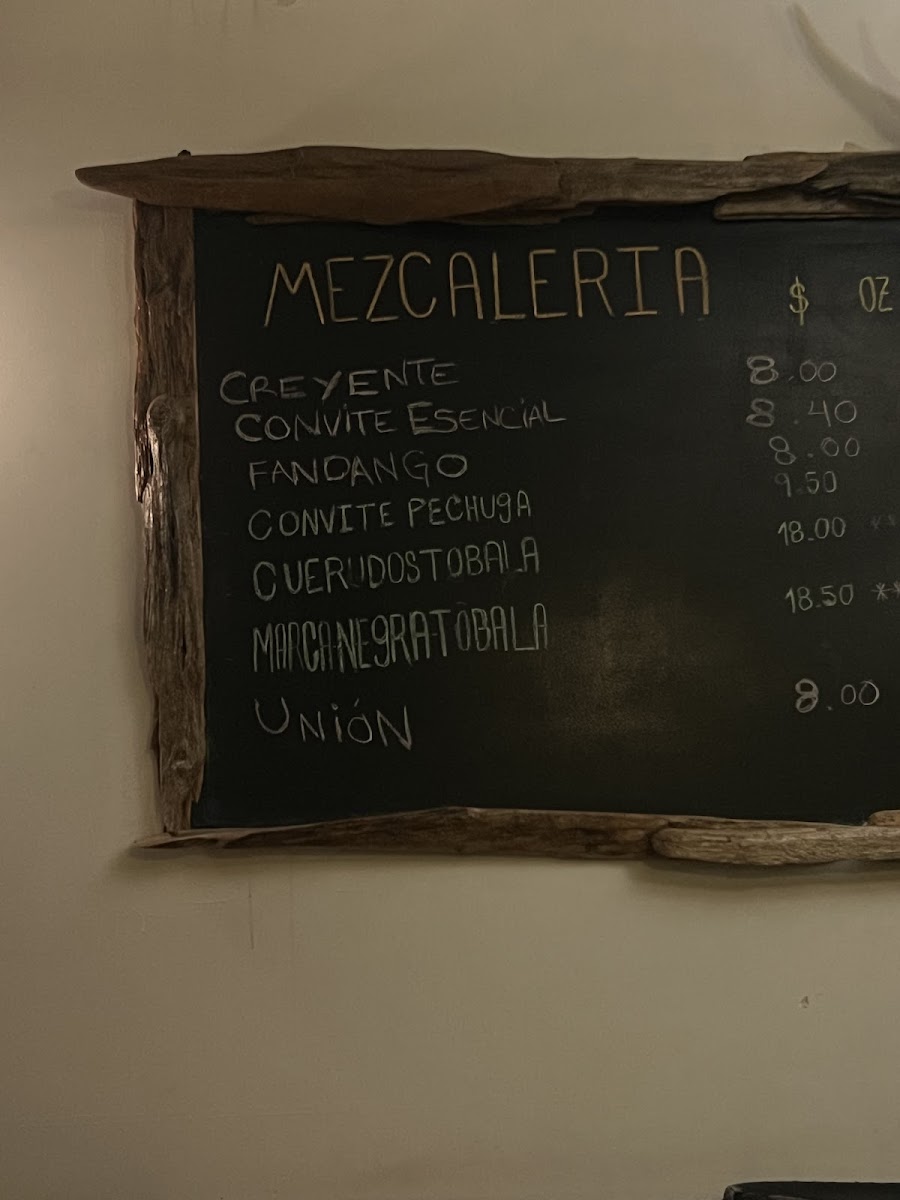 MEZCALERIA $ OZ
CREYENTE 8.00
CONVITE ESENCIAL 8.40
FANDANGO 8.00
CONVITE PECHUGA 9.50
CUERUDOSTOBALA 18.00 **
MARCANEGRATOBALA 18.50 **
UNIÓN 8.00